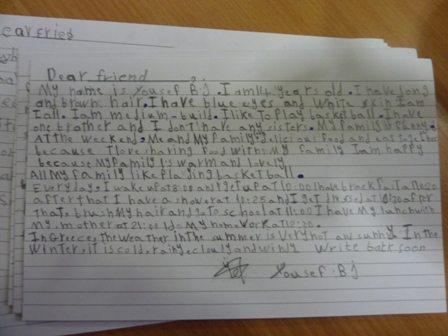 Dear friend
My name is Yousef Bj. I am 14 years old. I have long
and brown hair. I have blue eyes and white skin I am
Tall. I am medium-build. I like to play basketball. I have
one brother and I don't have any sisters. My family is
At the weekend. Me and My family delicious food and eat together
because I love sharing food with my family I am happy
because my family is warm and lovely
All My family like playing basketball.
Everyday I wake up at 8:00 and get up at I have breakfast at
after that I have a shower at 10:25 and I get dressed at
that brush My hair and go to school at 11:00 I have My lunch with
My mother at 21:00 do My homework at
In Greece, the weather in the summer is very hot and sunny. In the
winter, it is cold, rainy, cloudy and windy Write back soon
Yousef. Bj